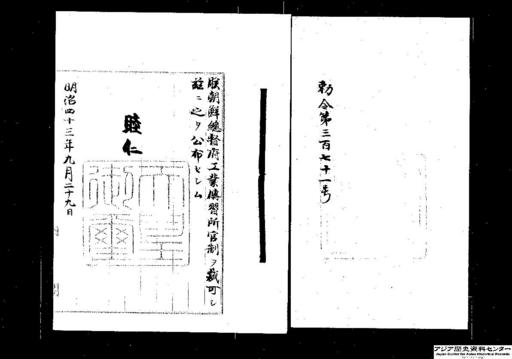 勅令第三百七十一号
朕朝鮮總督府工業傳習所官制ヲ裁可シ
玆ニ之ヲ公布セシム
睦仁
天皇御璽
明治四十三年九月二十九日
アジア歴史資料センター
Japan Center for Asian Historical Records